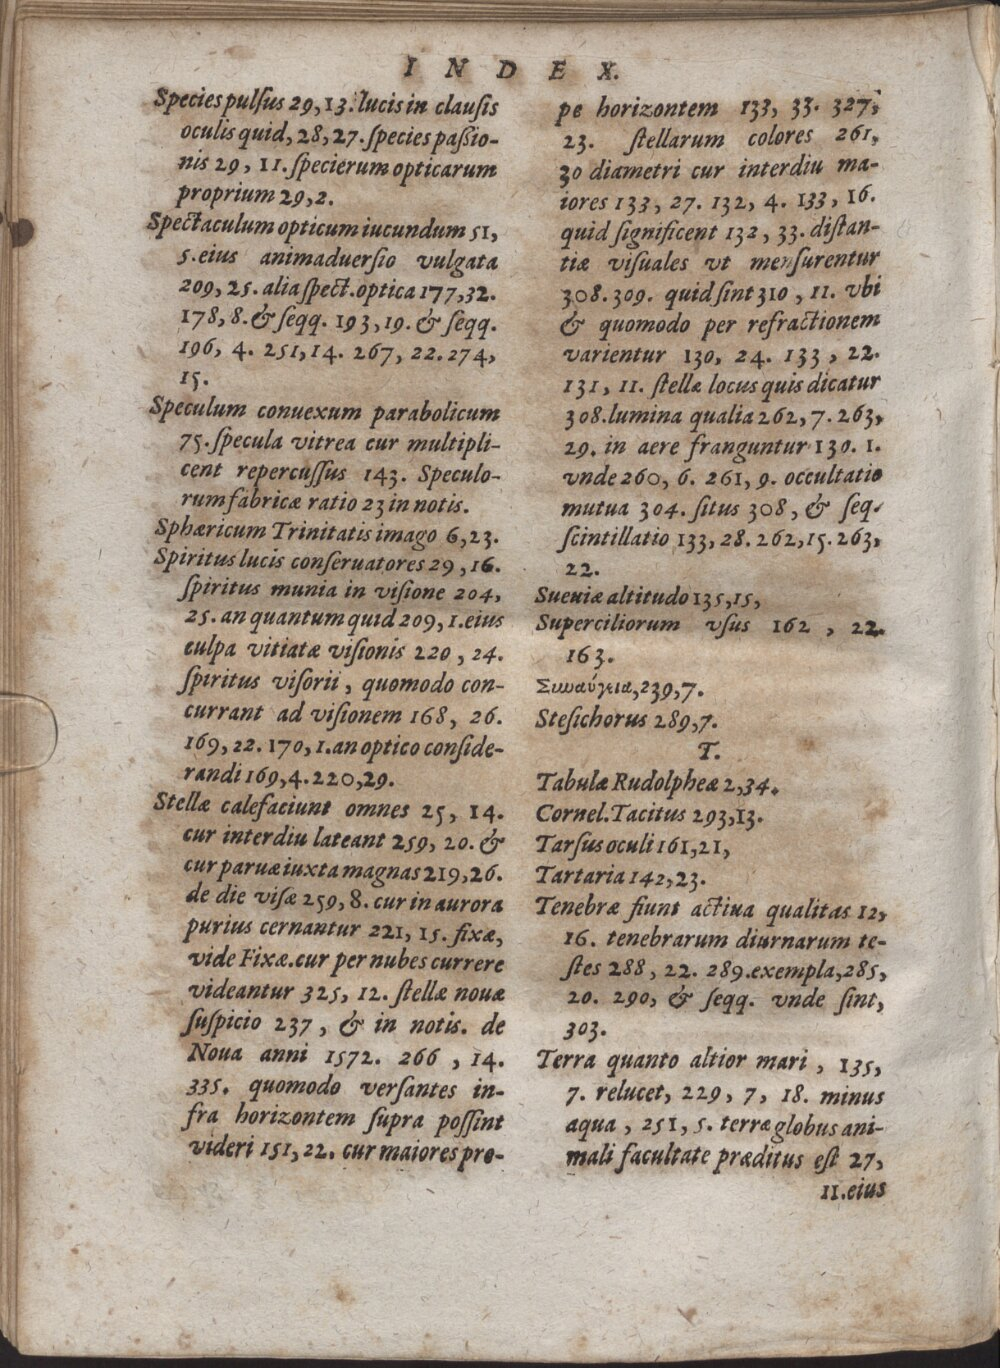 INDEX.
Species pulsus 29,13. lucis in clausis
oculis quid, 28,27. species passio-
nis 29, 11. specierum opticarum
proprium 29,2.
Spectaculum opticum iucundum 51,
5. eius animaduersio vulgata
209, 25. alia spect. optica 177,32.
178,8. & seqq. 193,19. & seqq.
196, 4. 251,14. 267, 22. 274,
15.
Speculum conuexum parabolicum
75. specula vitrea cur multipli-
cent repercussus 143. Speculo-
rum fabricæ ratio 23 in notis.
Sphæricum Trinitatis imago 6,23.
Spiritus lucis conseruatores 29,16.
spiritus munia in visione 204,
25. an quantum quid 209, 1. eius
culpa vitiatæ visionis 220, 24.
spiritus visorii, quomodo con-
currant ad visionem 168, 26.
169,22. 170,1. an optico conside-
randi 169,4. 220,29.
Stellæ calefaciunt omnes 25, 14.
cur interdiu lateant 259, 20. &
cur paruæ iuxta magnas 219,26.
de die visæ 259,8. cur in aurora
purius cernantur 221, 15. fixæ,
vide Fixæ. cur per nubes currere
videantur 325, 12. stellæ nouæ
suspicio 237, & in notis. de
Noua anni 1572. 266, 14.
335. quomodo versantes in-
fra horizontem supra possint
videri 151,22. cur maiores pro-
pe horizontem 133, 33. 327,
23. stellarum colores 261,
30 diametri cur interdiu ma-
iores 133, 27. 132, 4. 133, 16.
quid significent 132, 33. distan-
tiæ visuales vt mensurentur
308. 309. quid sint 310, 11. vbi
& quomodo per refractionem
varientur 130, 24. 133, 22.
131, 11. stellæ locus quis dicatur
308. lumina qualia 262,7. 263,
29. in aere franguntur 130. 1.
vnde 260, 6. 261, 9. occultatio
mutua 304. situs 308, & seq.
scintillatio 133,28. 262,15. 263,
22.
Sueuiæ altitudo 135,15,
Superciliorum vsus 162, 22.
163.
Συναύγεια,239,7.
Stesichorus 289,7.
T.
Tabulæ Rudolpheæ 2,34.
Cornel. Tacitus 293,13.
Tarsus oculi 161,21,
Tartaria 142,23.
Tenebræ fiunt actiua qualitas 12,
16. tenebrarum diurnarum te-
stes 288, 22. 289. exempla, 285,
20. 290, & seqq. vnde sint,
303.
Terra quanto altior mari, 135,
7. relucet, 229, 7, 18. minus
aqua, 251, 5. terræ globus ani-
mali facultate præditus est 27,
11. eius